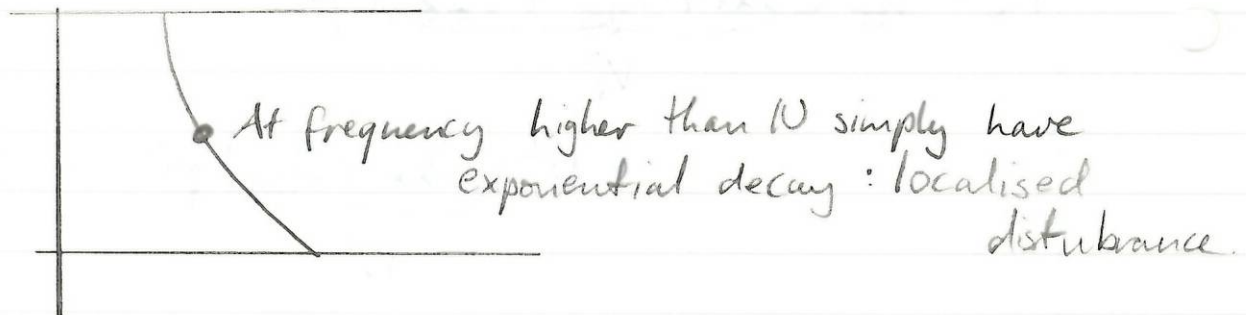 At frequency higher than N simply have
exponential decay : localised
distubrance.